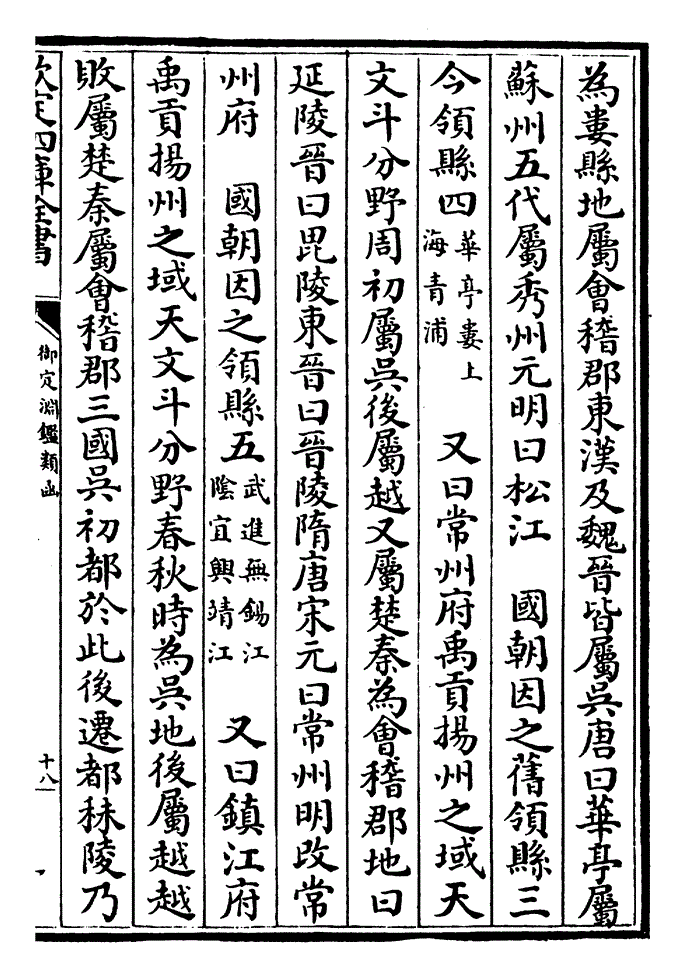 為婁縣地屬會稽郡東漢及魏晉皆屬吳唐曰華亭屬
蘇州五代屬秀州元明曰松江　國朝因之舊領縣三
今領縣四華亭婁上海青浦　又曰常州府禹貢揚州之域天
文斗分野周初屬吳後屬越又屬楚秦為會稽郡地曰
延陵晉曰毘陵東晉曰晉陵隋唐宋元曰常州明改常
州府　國朝因之領縣五武進無錫江陰宜興靖江　又曰鎮江府
禹貢揚州之域天文斗分野春秋時為吳地後屬越越
敗屬楚秦屬會稽郡三國吳初都於此後遷都秣陵乃
欽定四庫全書
御定淵鑑類函
十八